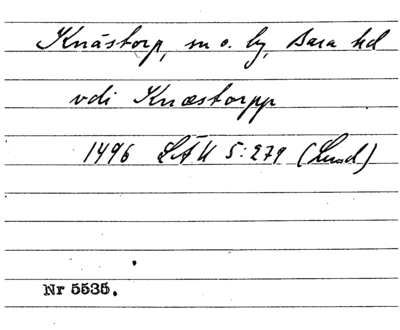 Knästorp, sn o. by, Bara hd
vdi Knæstorpp
1496 LÄU 5:279 (Lund)
Nr 5535.